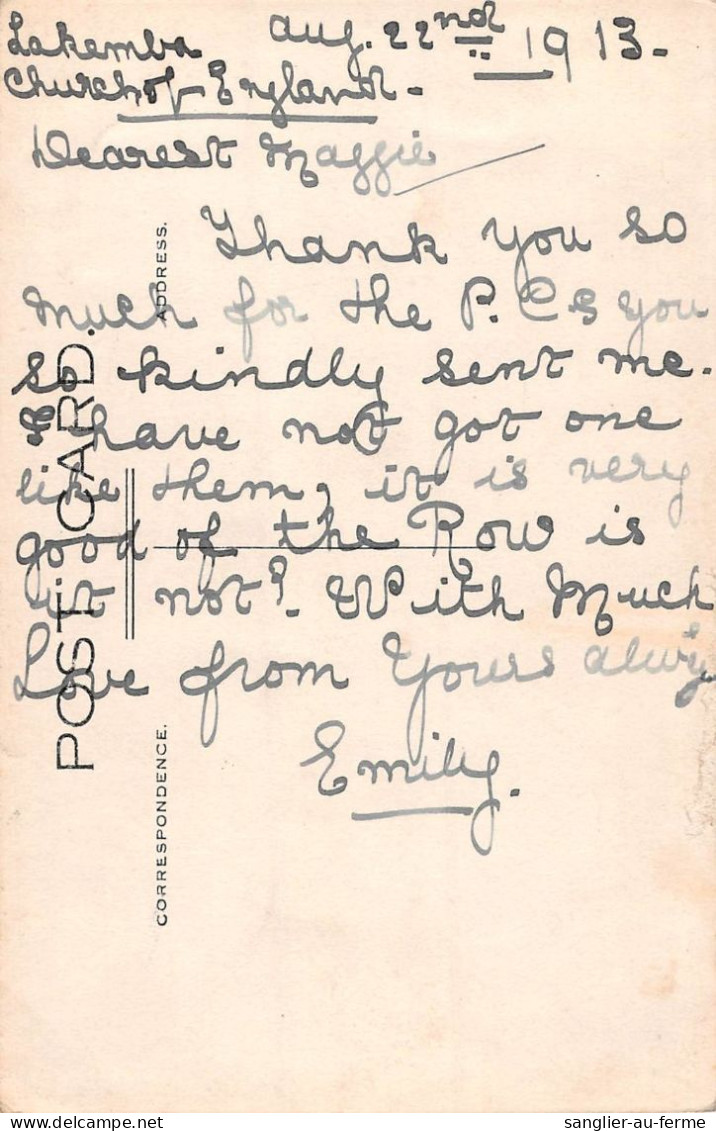 Lakemba Aug. 22nd 1913-
Church of England-
Dearest Maggie
Thank you so
much for the P.Cs you
so kindly sent me.
I have not got one
like them, it is very
good of the Row is
it not? - With Much
Love from Yours alwys
Emily.
POST CARD.
ADDRESS.
CORRESPONDENCE.
sanglier-au-ferme